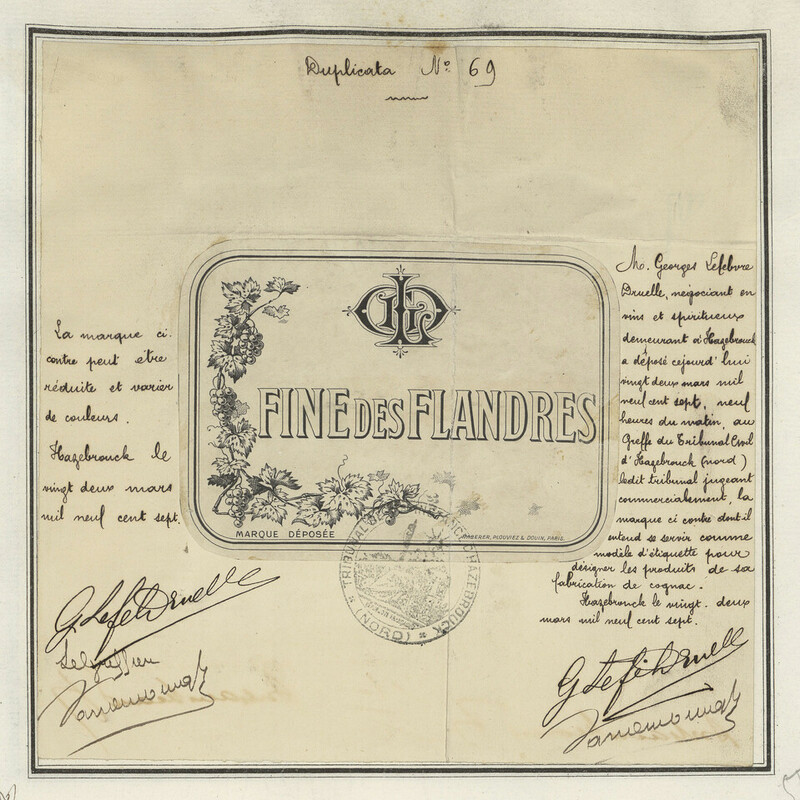 Duplicata Nº 69
La marque ci
contre peut être
réduite et varier
de couleurs.
Hazebrouck le
vingt deux mars
mil neuf cent sept.
G. Lefeb Druelle
Le Greffier
FINE DES FLANDRES
MARQUE DÉPOSÉE
HABERER, PLOUVIEZ & DOUIN, PARIS.
TRIBUNAL HAZEBROUCK
(NORD)
M. Georges Lefebvre
Druelle, négociant en
vins et spiritueux
demeurant à Hazebrouck
a déposé cejourd'hui
vingt deux mars mil
neuf cent sept, neuf
heures du matin, au
Greffe du Tribunal Civil
d'Hazebrouck (nord)
ledit tribunal jugeant
commercialement, la
marque ci contre dont il
entend se servir comme
modèle d'étiquette pour
désigner les produits de sa
fabrication de cognac.
Hazebrouck le vingt. deux
mars mil neuf cent sept.
G Lefeb Druelle